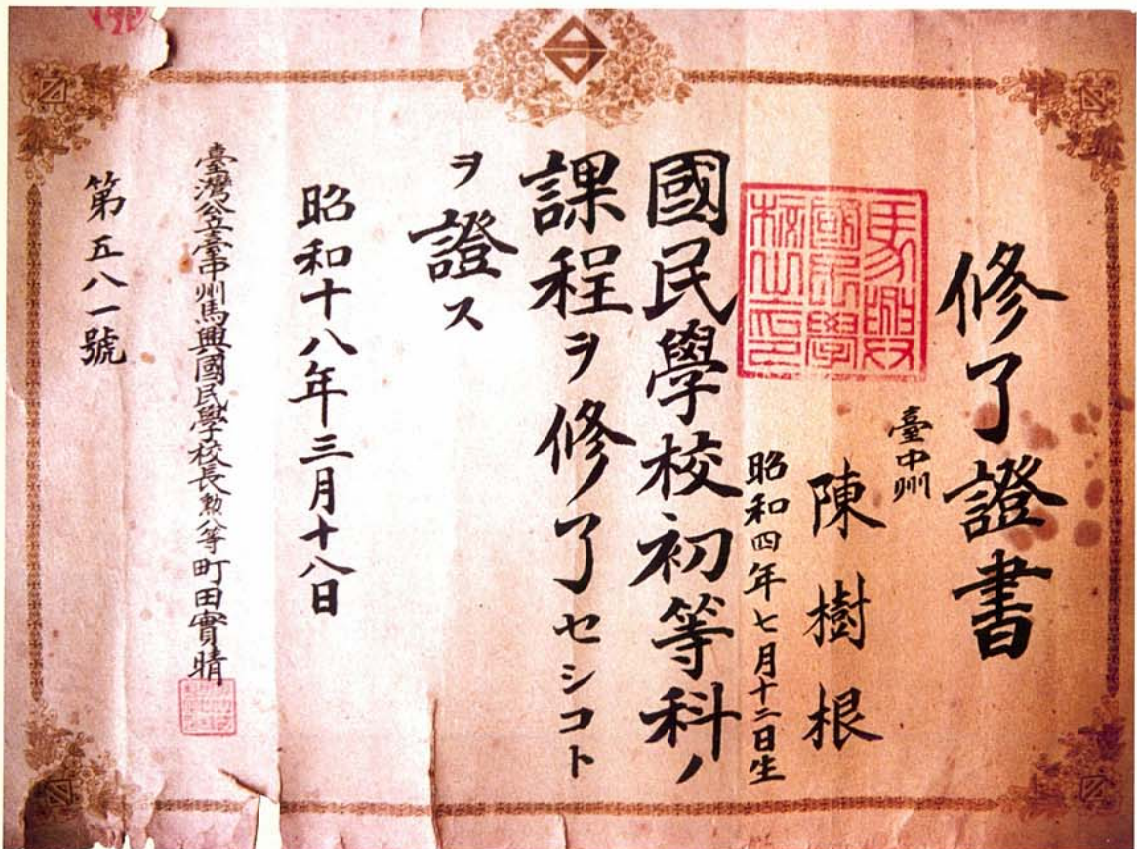 修了證書
臺中州
陳樹根
昭和四年七月十二日生
國民學校初等科ノ
課程ヲ修了セシコト
ヲ證ス
昭和十八年三月十八日
臺灣公立臺中州馬興國民學校長勲八等町田實晴
第五八一號
馬興
國民學
校之印